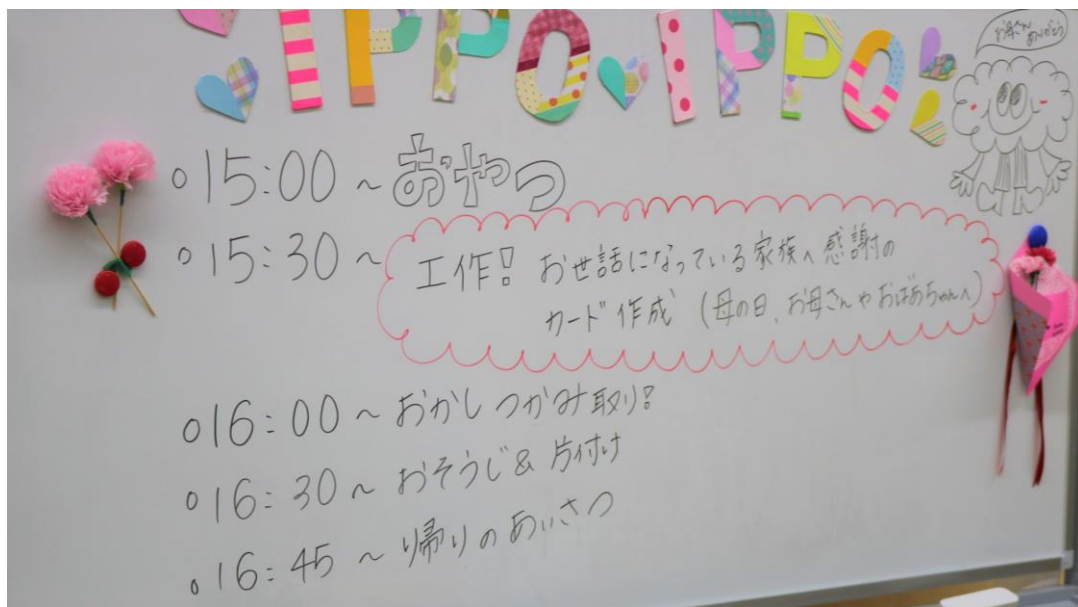 IPPO IPPO
お母さん
ありがとう
○15:00～おやつ
○15:30～工作! お世話になっている家族へ感謝の
カード作成 (母の日、お母さんやおばあちゃんへ)
○16:00～おかしつかみ取り!
○16:30～おそうじ&片付け
○16:45～帰りのあいさつ